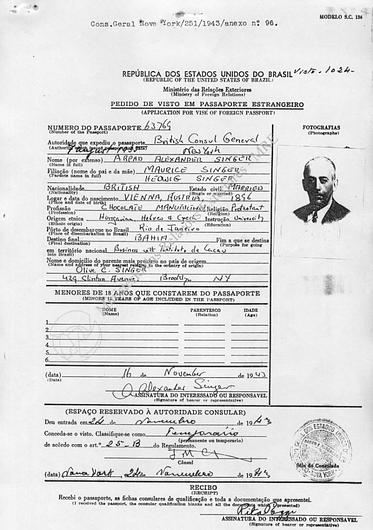 Cons.Geral Nova York/251/1943/anexo nº 96.
MODELO S.C. 136
REPÚBLICA DOS ESTADOS UNIDOS DO BRASIL Visto-1024-
(REPUBLIC OF THE UNITED STATES OF BRAZIL)
Ministério das Relações Exteriores
(Ministry of Foreign Relations)
PEDIDO DE VISTO EM PASSAPORTE ESTRANGEIRO
(APPLICATION FOR VISE OF FOREIGN PASSPORT)
NUMERO DO PASSAPORTE 63765
(Number of the Passport)
FOTOGRAFIAS
(Photographs)
Autoridade que expediu o passaporte British Consul General
New York
Nome (por extenso) ARPAD ALEXANDER SINGER
(Name in full)
Filiação (nomes do pai e da mãe) MAURICE SINGER
(Parents name in full)
HEDWIG SINGER
Nacionalidade BRITISH Estado civil MARRIED
(Nationality)
Lugar e data do nascimento VIENNA, AUSTRIA, 1896
(Place and date of birth)
Profissão CHOCOLATE MANUFACTURER Religião Protestant
(Profession)
Origem Hungarian, Hebrew & Czech Instrução University
(Ethnic origin)
Pôrto de desembarque no Brasil Rio de Janeiro
(Place of disembarkation in Brazil)
Destino final BAHIA Fim a que se destina
(Final destination) (Purpose for going
em território nacional Business with Instituto de Cacau
Nome e domicilio do parente mais próximo no país de origem
(Name and address of your nearest relative in the country of origin)
Olive C. SINGER
429 Clinton Avenue, Brooklyn NY
MENORES DE 18 ANOS QUE CONSTAREM DO PASSAPORTE
(MINORS 18 YEARS OF AGE INCLUDED IN THE PASSPORT)
NOME PARENTESCO IDADE
(Name) (Relation) (Age)
1.
2.
3.
4.
5.
6.
(data) 16 November de 1943
(date)
A. Alexander Singer
ASSINATURA DO INTERESSADO OU RESPONSÁVEL
(Signature of bearer or representative)
(ESPAÇO RESERVADO À AUTORIDADE CONSULAR)
Deu entrada em 24 de novembro de 1943
Concede-se o visto. Classifique-se como Temporario
(permanente ou temporario)
de acôrdo com o artº 25-B do Regulamento.
Cônsul
Sêlo do Consulado
(data) Nova York, 24 de Novembro de 1943
RECIBO
(RECEIPT)
Recebi o passaporte, as fichas consulares de qualificação e toda a documentação que apresentei.
(I received the passport, the consular qualification blanks and all the documents which I presented)
ASSINATURA DO INTERESSADO OU RESPONSÁVEL
(Signature of bearer or representative)